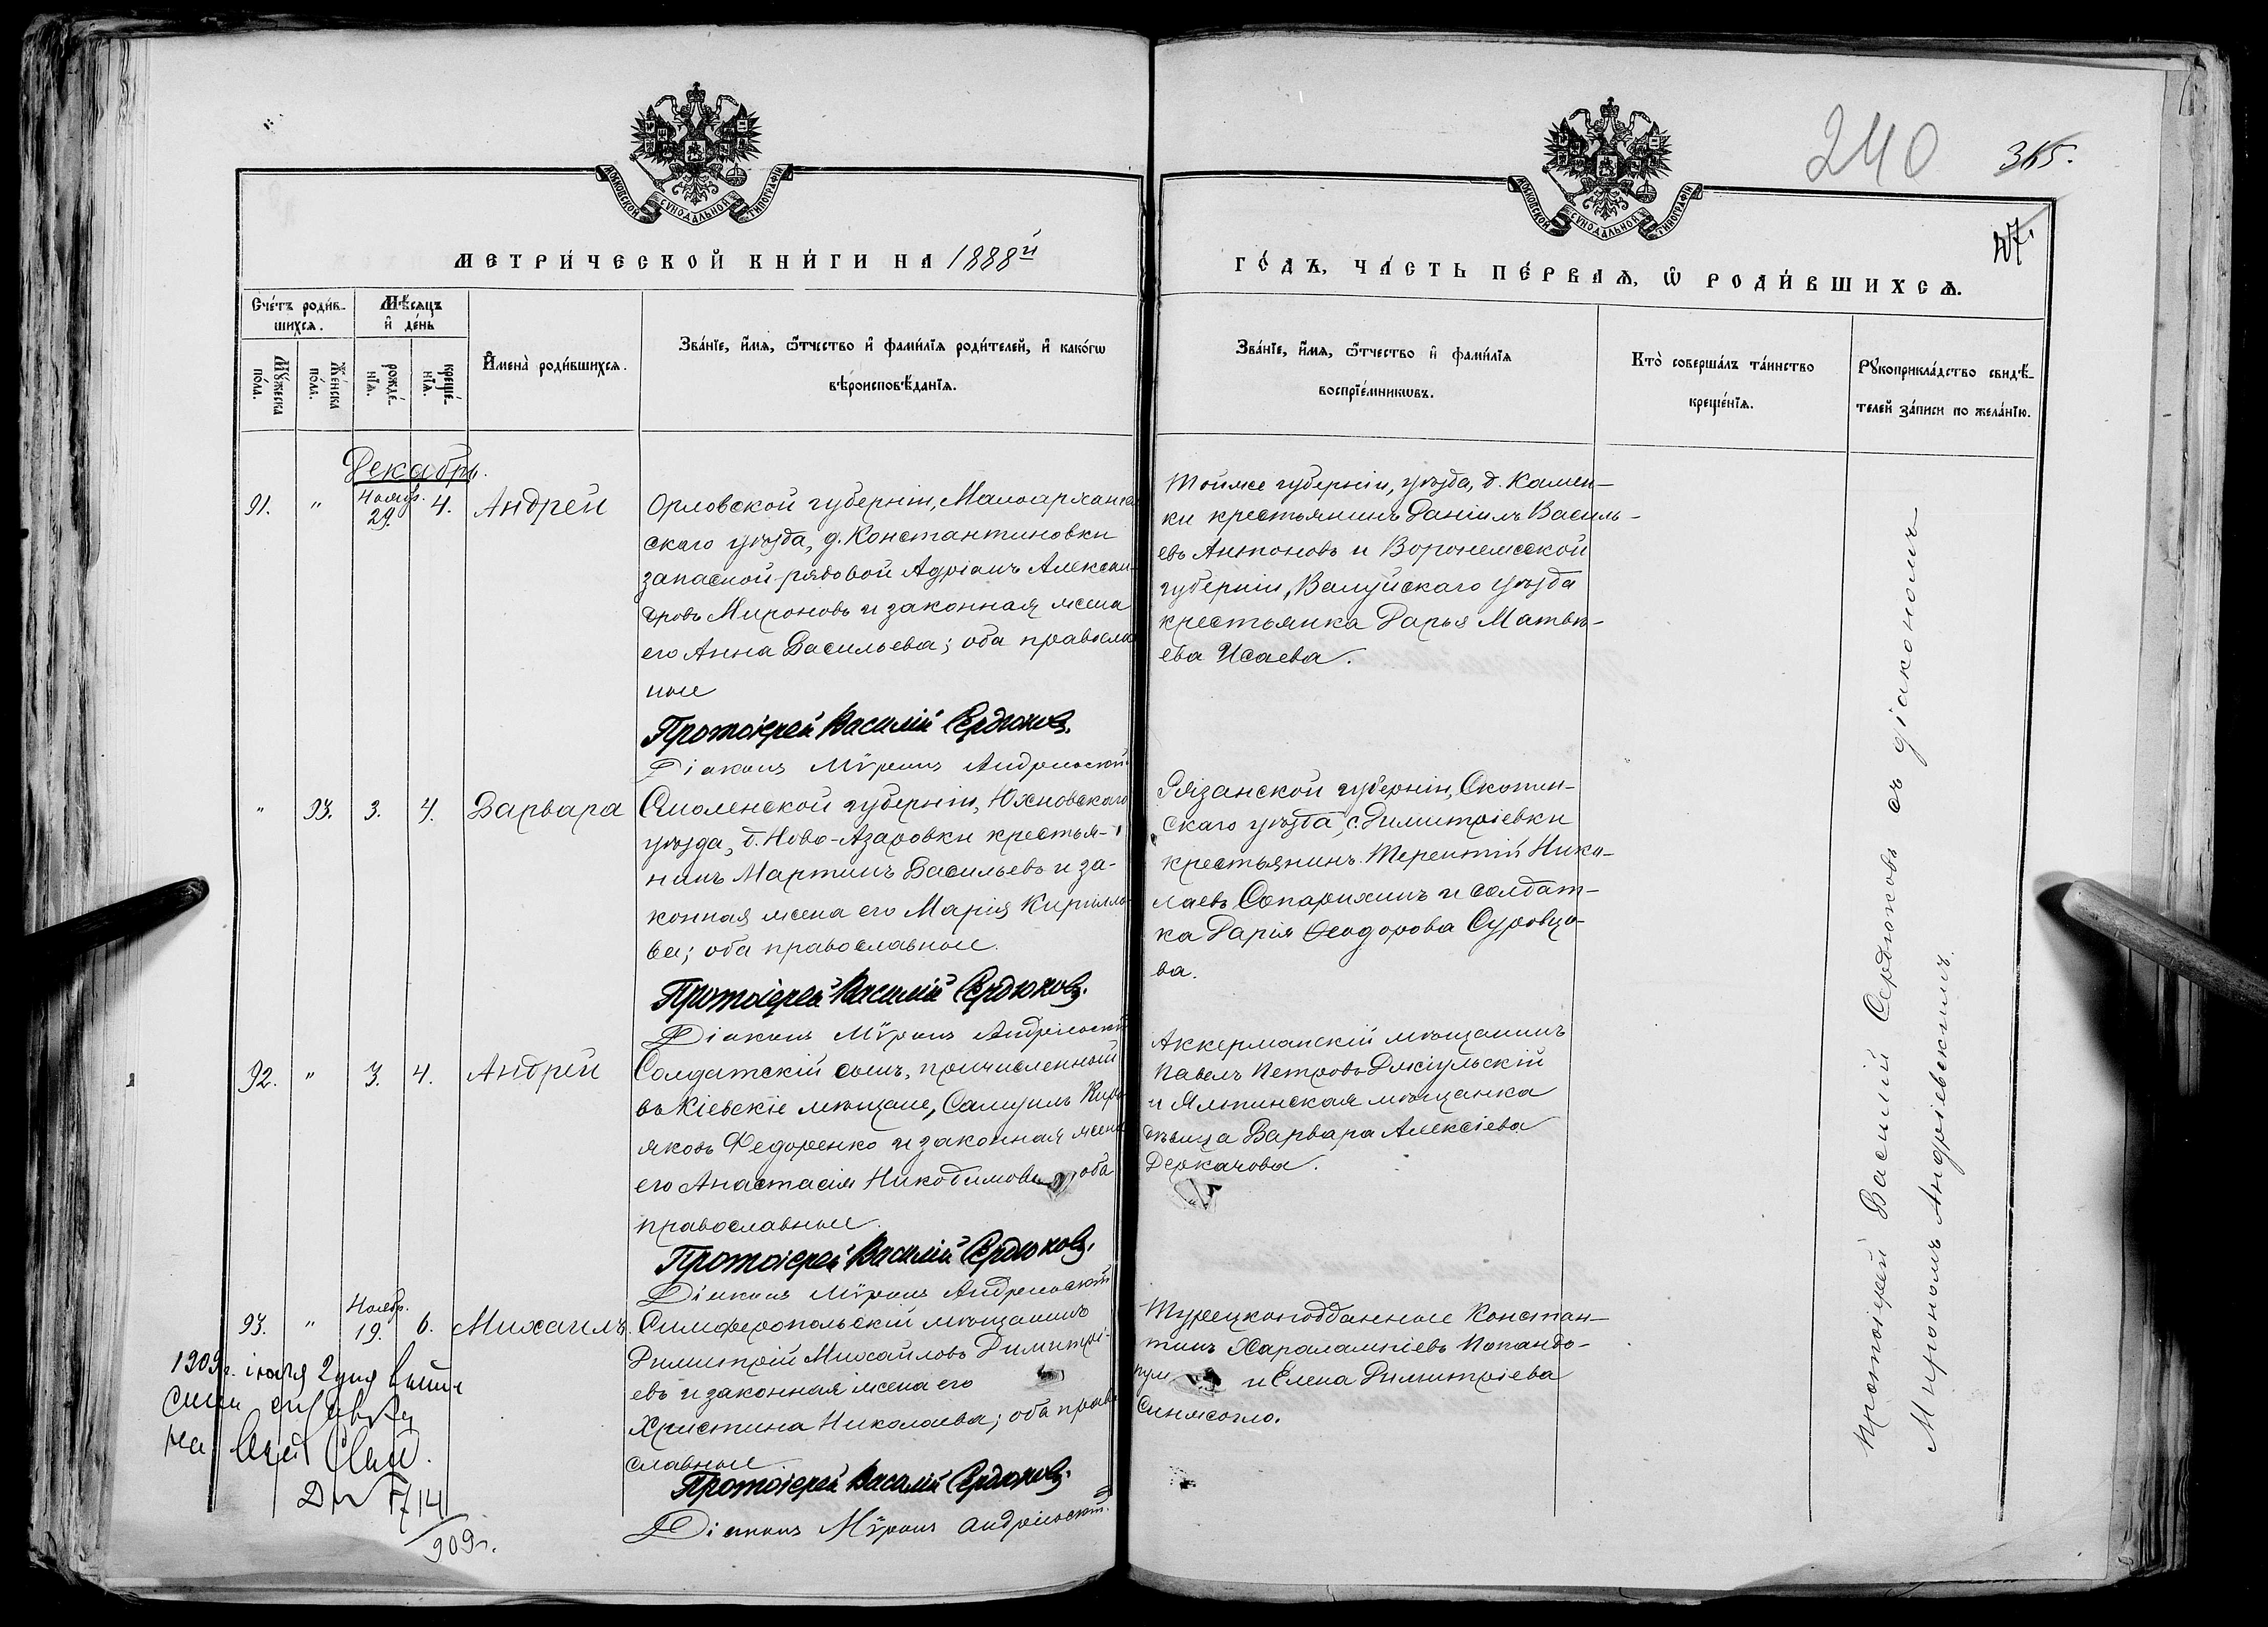 240
365.
МОСКОВСКОЙ СѴНОДАЛЬНОЙ ТИПОГРАФІИ
МОСКОВСКОЙ СѴНОДАЛЬНОЙ ТИПОГРАФІИ
МЕТРИ́ЧЕСКОЙ КНИ́ГИ НА 1888й
ГО́ДЪ, ЧА́СТЬ ПЕ́РВАѦ, Ѿ РОДИ́ВШИХСѦ.
Сче́тъ роди́в-
шихсѧ.
Мꙋ́жеска по́ла.
Же́нска по́ла.
Мѣ́сѧцъ и҆ де́нь
рожде́-
нїѧ.
креще́-
нїѧ.
И҆мена̀ роди́вшихсѧ.
Зва́нїе, и҆́мѧ, ѻ҆́тчество и҆ фами́лїѧ роди́телей, и҆ како́гѡ
вѣроисповѣ́данїѧ.
Зва́нїе, и҆́мѧ, ѻ҆́тчество и҆ фами́лїѧ
воспрїе́мникѡвъ.
Кто̀ соверша́лъ та́инство
креще́нїѧ.
Рꙋкоприкла́дство свидѣ́-
телей за́писи по жела́нїю.
Декабрь.
91. " Ноябр. 29. 4. Андрей
Орловской губерніи, Малоархангел
скаго уѣзда, д. Константиновки
запасной рядовой Адріанъ Алексан-
дровъ Мироновъ и законная жена
его Анна Васильева; оба правосла
ные
Протоіерей Василій Сердюковъ.
Діаконъ Мѵронъ Андріевскій
Тойже губерніи, уѣзда, д. Камен-
ки крестьянинъ Даніилъ Василь-
евъ Антоновъ и Воронежской
губерніи, Валуйскаго уѣзда
крестьянка Дарья Матвѣ-
ева Исаева.
" 93. 3. 4. Варвара
Смоленской губерніи, Юхновскаго
уѣзда, д. Ново-Азаровки крестья-
нинъ Мартинъ Васильевъ и за-
конная жена его Марія Кирилло
ва; оба православные.
Протоіерей Василій Сердюковъ.
Діаконъ Мѵронъ Андріевскій
Рязанской губерніи, Скопин-
скаго уѣзда, с. Димитріевки
крестьянинъ Терентій Нико-
лаевъ Сопарихинъ и солдат-
ка Дарія Ѳеодорова Суровцо-
ва.
92. " 3. 4. Андрей
Солдатскій сынъ, причисленный
въ Кіевскіе мѣщане, Самуилъ Кирь
яковъ Федоренко и законная жена
его Анастасія Никодимова; оба
православные.
Протоіерей Василій Сердюковъ.
Діаконъ Мѵронъ Андріевскій
Аккерманскій мѣщанинъ
Павелъ Петровъ Джіульскій
и Ялтинская мѣщанка
дѣвица Варвара Алексіева
Деркачова.
93. " Ноябр. 19. 6. Михаилъ
Симферопольскій мѣщанинъ
Димитрій Михайловъ Димитрі-
евъ и законная жена его
Христина Николаева; оба право
славные.
Протоіерей Василій Сердюковъ.
Діаконъ Мѵронъ Андріевскій.
Турецкоподданные Констан-
тинъ Харалампіевъ Попандо-
пуло и Елена Димитріева
Синжогло.
Протоіерей Василій Сердюковъ съ діакономъ
Мирономъ Андріевскимъ.
1909г. іюля 2 дня
на
909г.